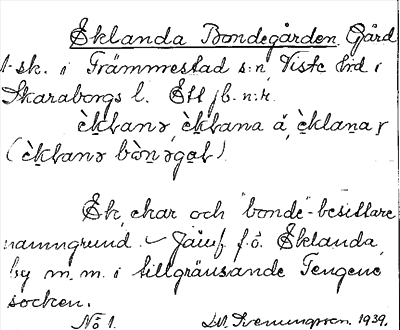 Eklanda Bondegården Gård
1 sk. i Främmestad s:n, Viste hrd i
Skaraborgs l. Ett jb. n:r.
Ek, ekar och "bonde"-besittare
namngrund. Jämf. f.ö. Eklanda
by m.m. i tillgränsande Tengene
socken.
No 1. Svenungsson. 1939.